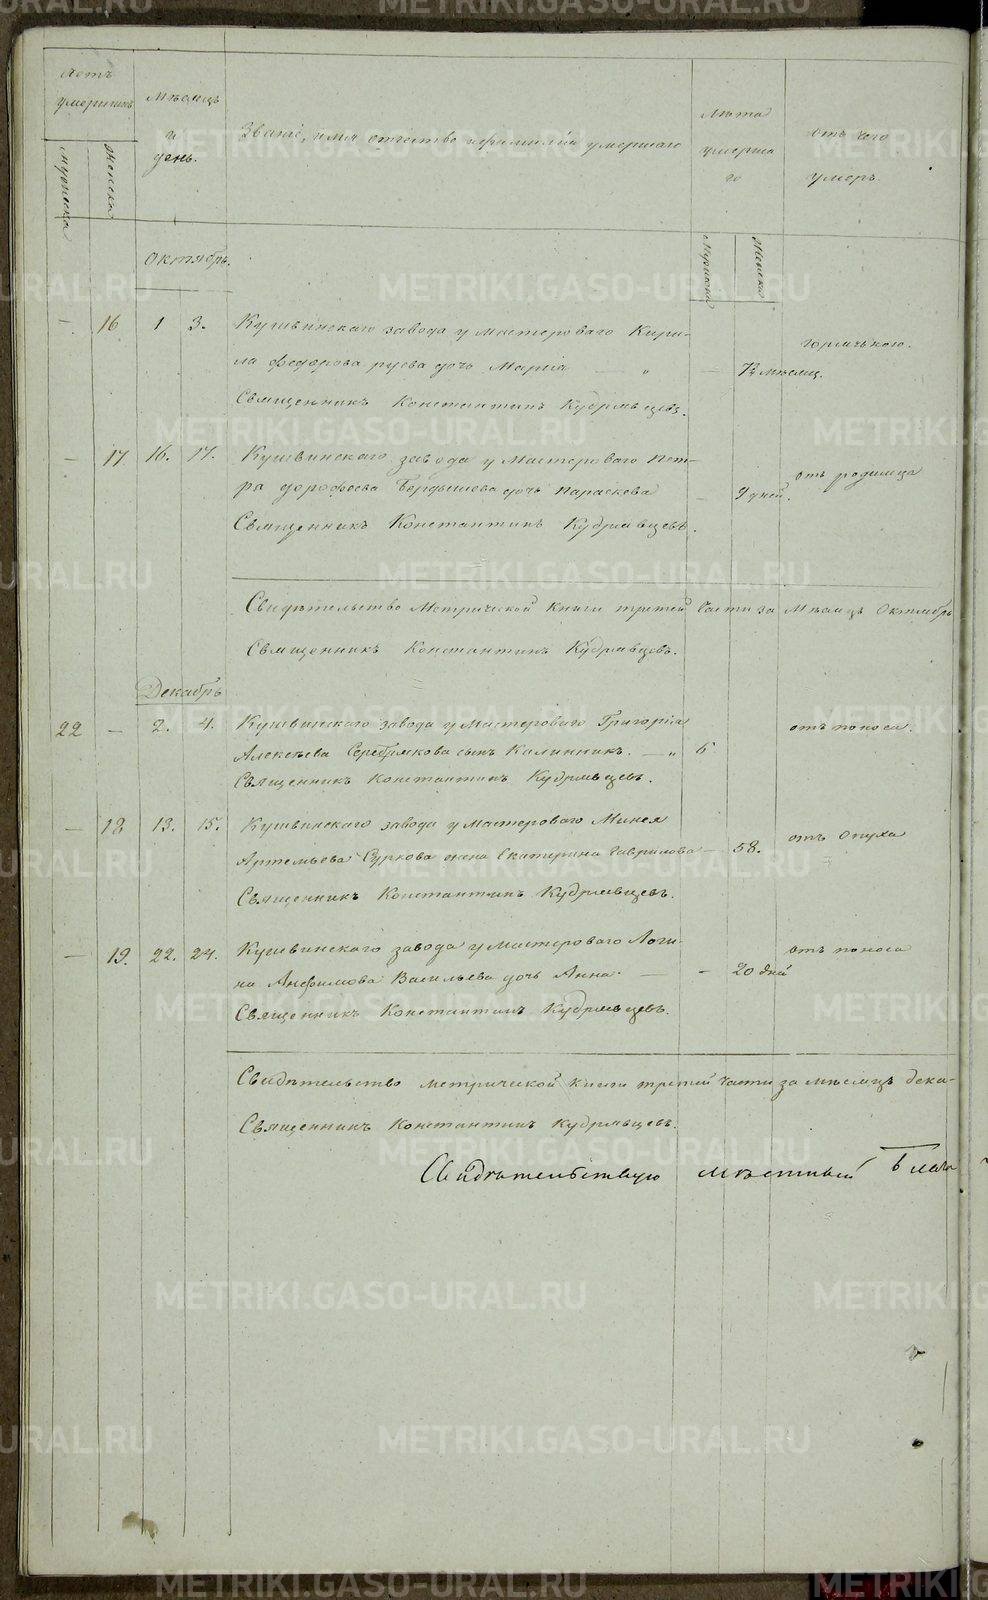 Летъ умершихъ
Мужеска
Женска
Мѣсяцъ и день.
Званіе, имя отчество и фамилія умершаго
Лѣта умерша го
Мужеска
Женска
отъ чего умеръ.
Октябрь.
16 1 3. Кушвинскаго завода у мастероваго Кири-
ла Федорова дочь Марія — 7½ мѣсяц. горячкою.
Священникъ Константинъ Кудрявцевъ.
— 17 16. 17. Кушвинскаго завода у мастероваго Пет-
ра Дорофеева Бердышева дочь Параскева — 9 дней. отъ родимца
Священникъ Константинъ Кудрявцевъ.
Свидѣтельство Метрической книги третей части за Мѣсяцъ Октябрь
Священникъ Константинъ Кудрявцевъ.
Декабрь
22 — 2. 4. Кушвинскаго завода у мастероваго Григорія
Алексѣева Серебрякова сынъ Калинникъ. — 6 отъ поноса.
Священникъ Константинъ Кудрявцевъ.
— 18 13. 15. Кушвинскаго завода у мастероваго Минея
Артемьева Суркова жена Екатерина Гаврилова — 58. отъ опуха
Священникъ Константинъ Кудрявцевъ.
— 19. 22. 24. Кушвинскаго завода у мастероваго Логи-
на Анфимова Васильева дочь Анна. — 20 дней отъ поноса
Священникъ Константинъ Кудрявцевъ.
Свидѣтельство метрической книги третей части за мѣсяцъ дека-
Священникъ Константинъ Кудрявцевъ.
Свидѣтельствую мѣстный Благо
METRIKI.GASO-URAL.RU